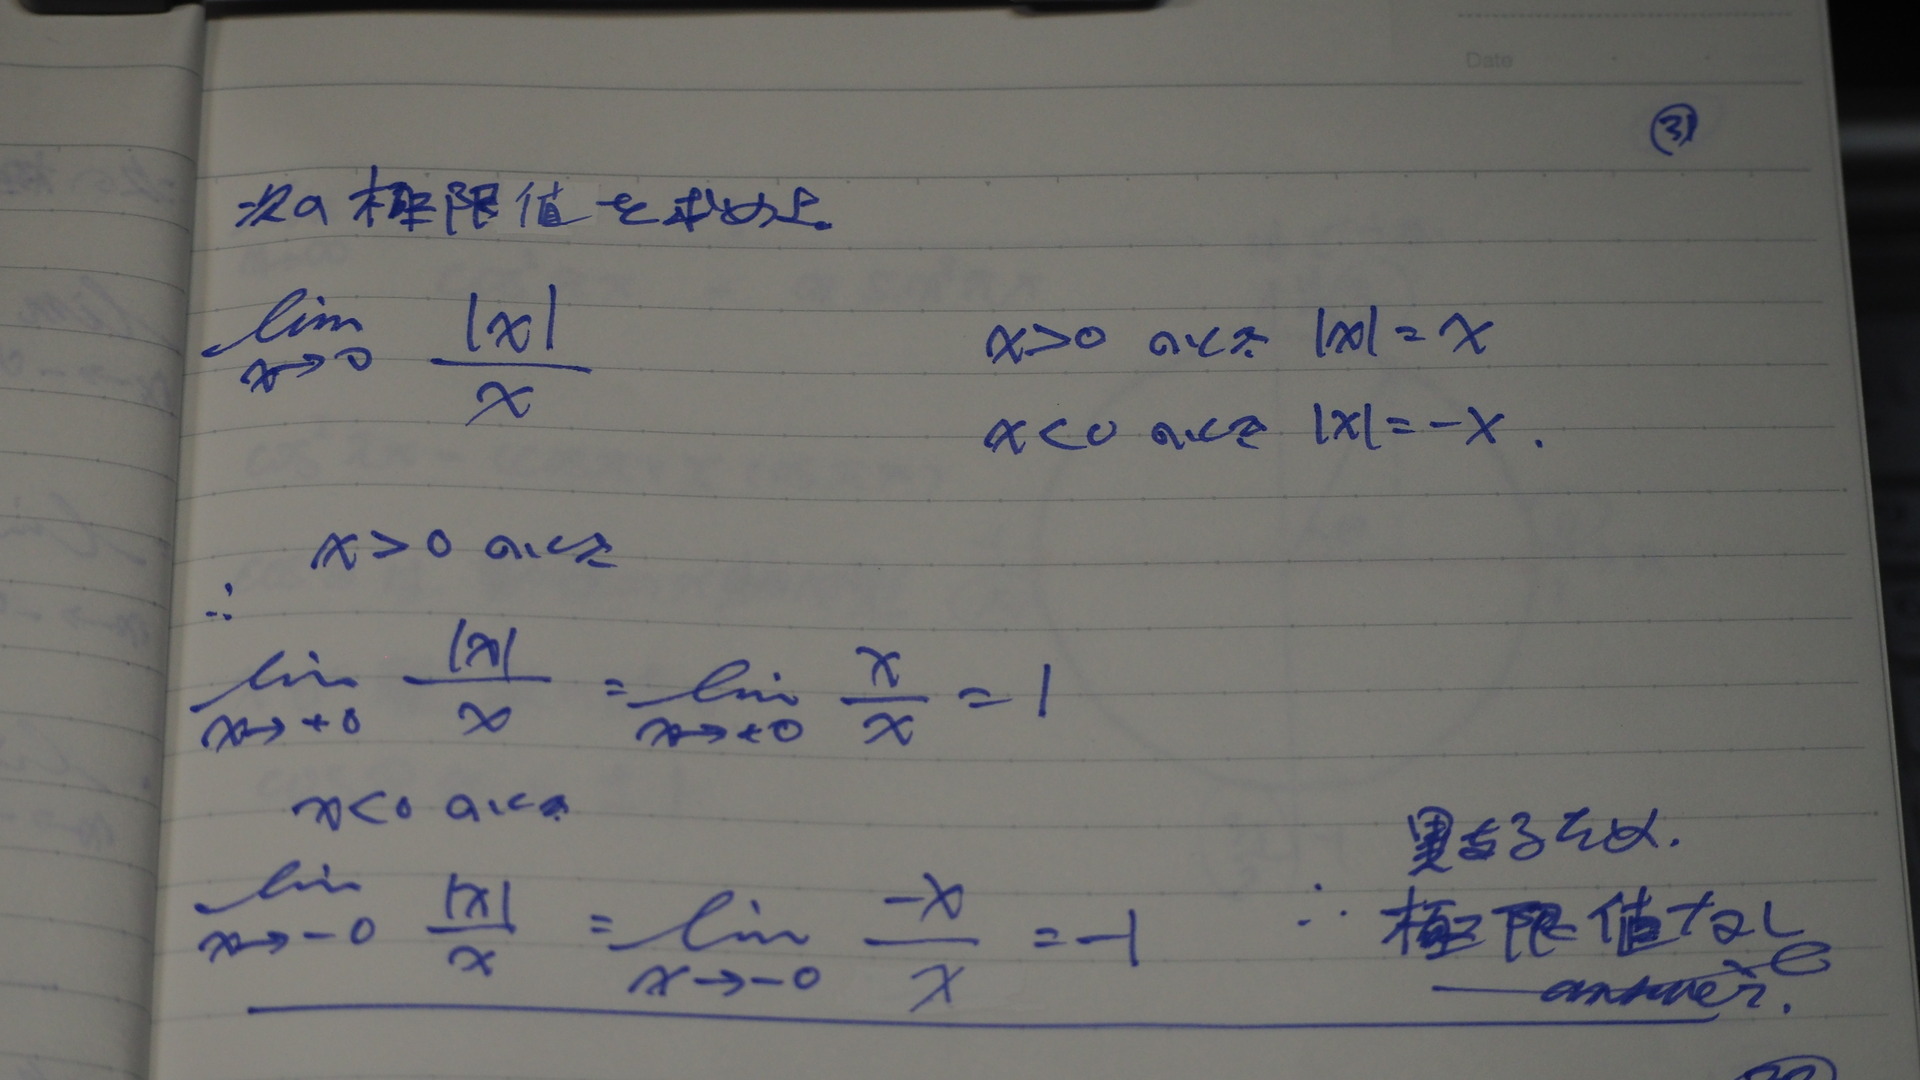 Date
③
次の極限値を求めよ.
lim x→0 |x|/x
x>0 のとき |x|=x
x<0 のとき |x|=-x.
x>0 のとき
∴
lim x→+0 |x|/x = lim x→+0 x/x = 1
x<0 のとき
lim x→-0 |x|/x = lim x→-0 -x/x = -1
異なるため.
∴ 極限値なし
answer.